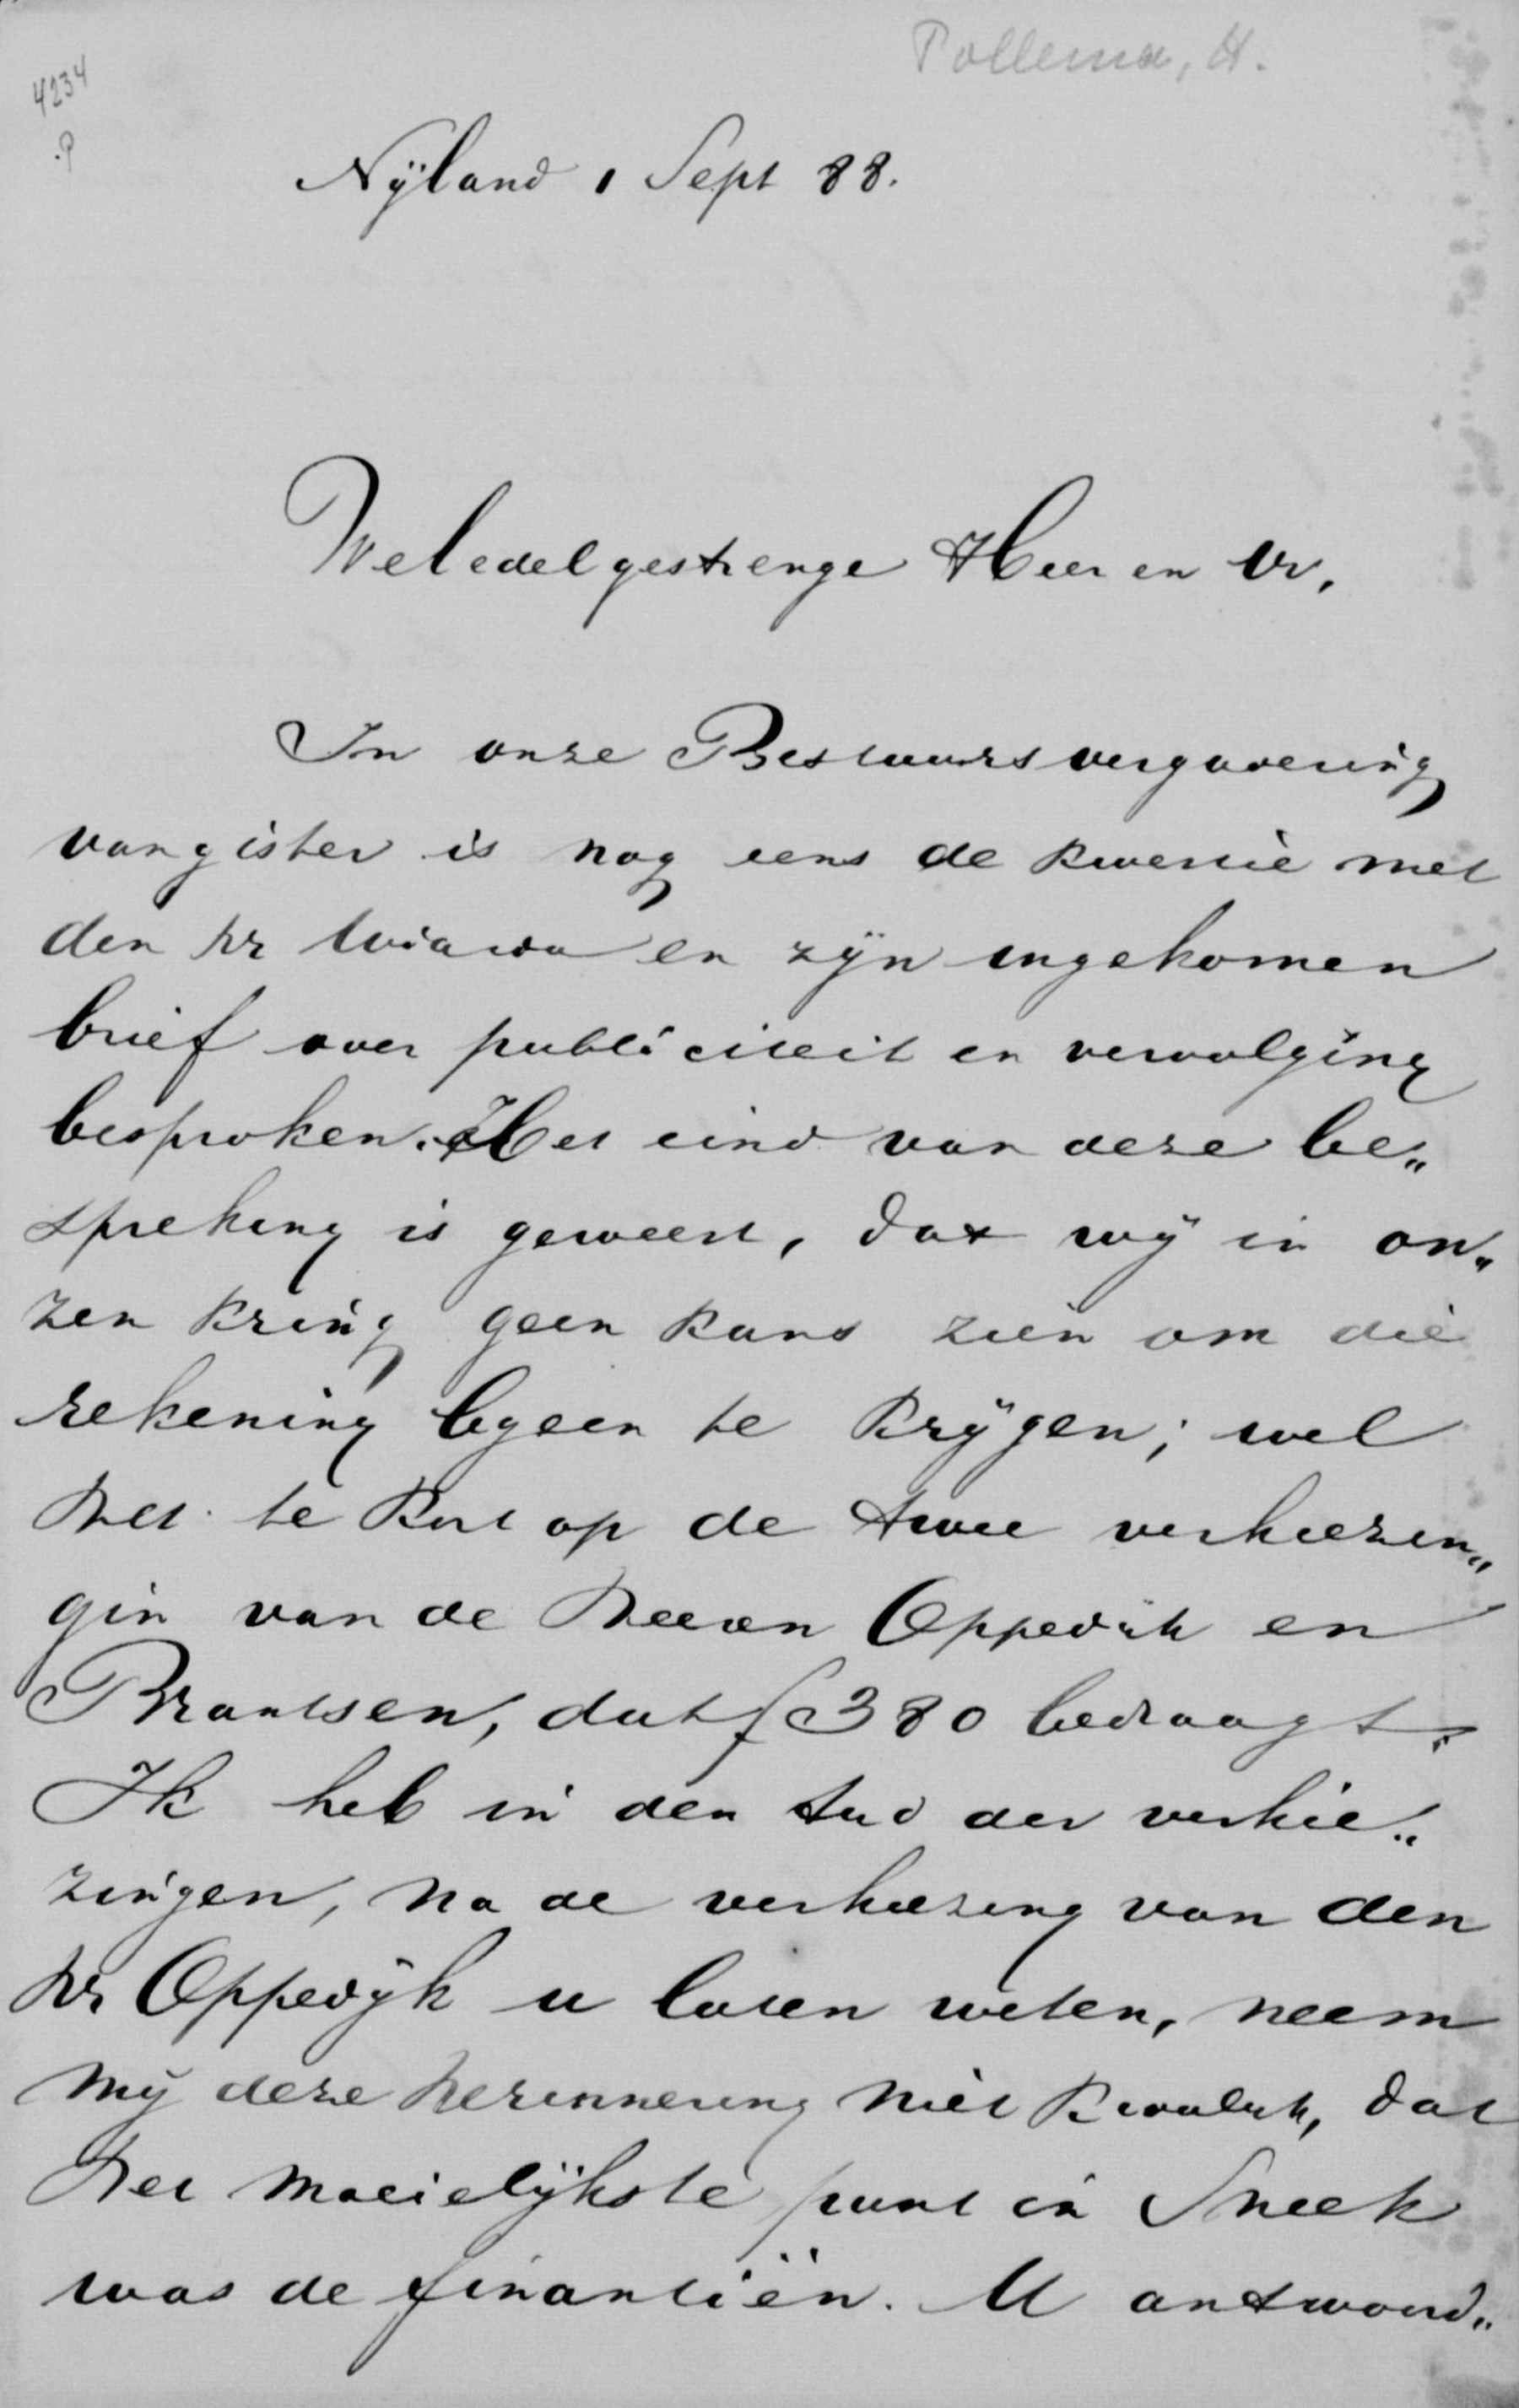 Pollema, H.
4234
P
Nÿland 1 Sept 88.
Weledelgestrenge Heer en Vr,
In onze Bestuursvergadering
van gister is nog eens de kwestie met
den hr Wiarda en zÿn ingekomen
brief over publiciteit en vervolging
besproken. Het eind van deze be„
spreking is geweest, dat wÿ in on„
zen kring geen kans zien om die
rekening bÿeen te krÿgen; wel
het te kort op de twee verkiezin„
gin van de Heeren Oppedÿk en
Brantsen, dat f 380 bedraagt.
Ik heb in den tud der verkie„
zingen, na de verkiezing van den
hr Oppedÿk u laten weten, neem
mÿ deze herinnering niet kwalÿk, dat
het moeielÿkste punt in Sneek
was de finantiën. U antwoord„